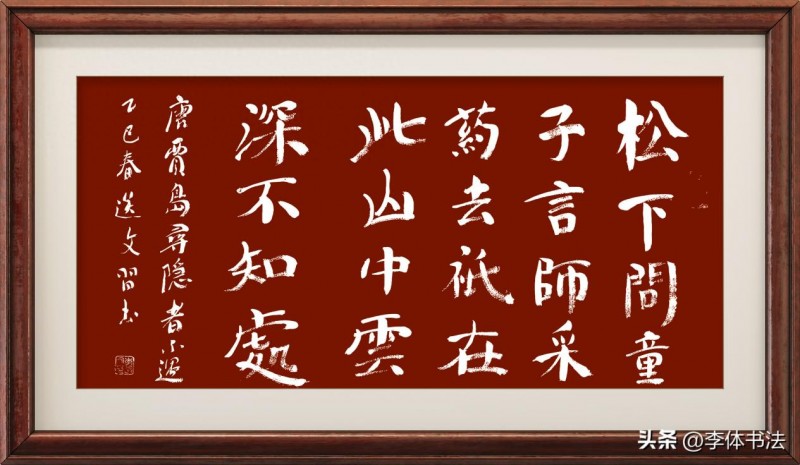 松下問童
子言師采
藥去祇在
此山中雲
深不知處
唐賈島尋隱者不遇
乙巳春送文習书
头条 @李体书法